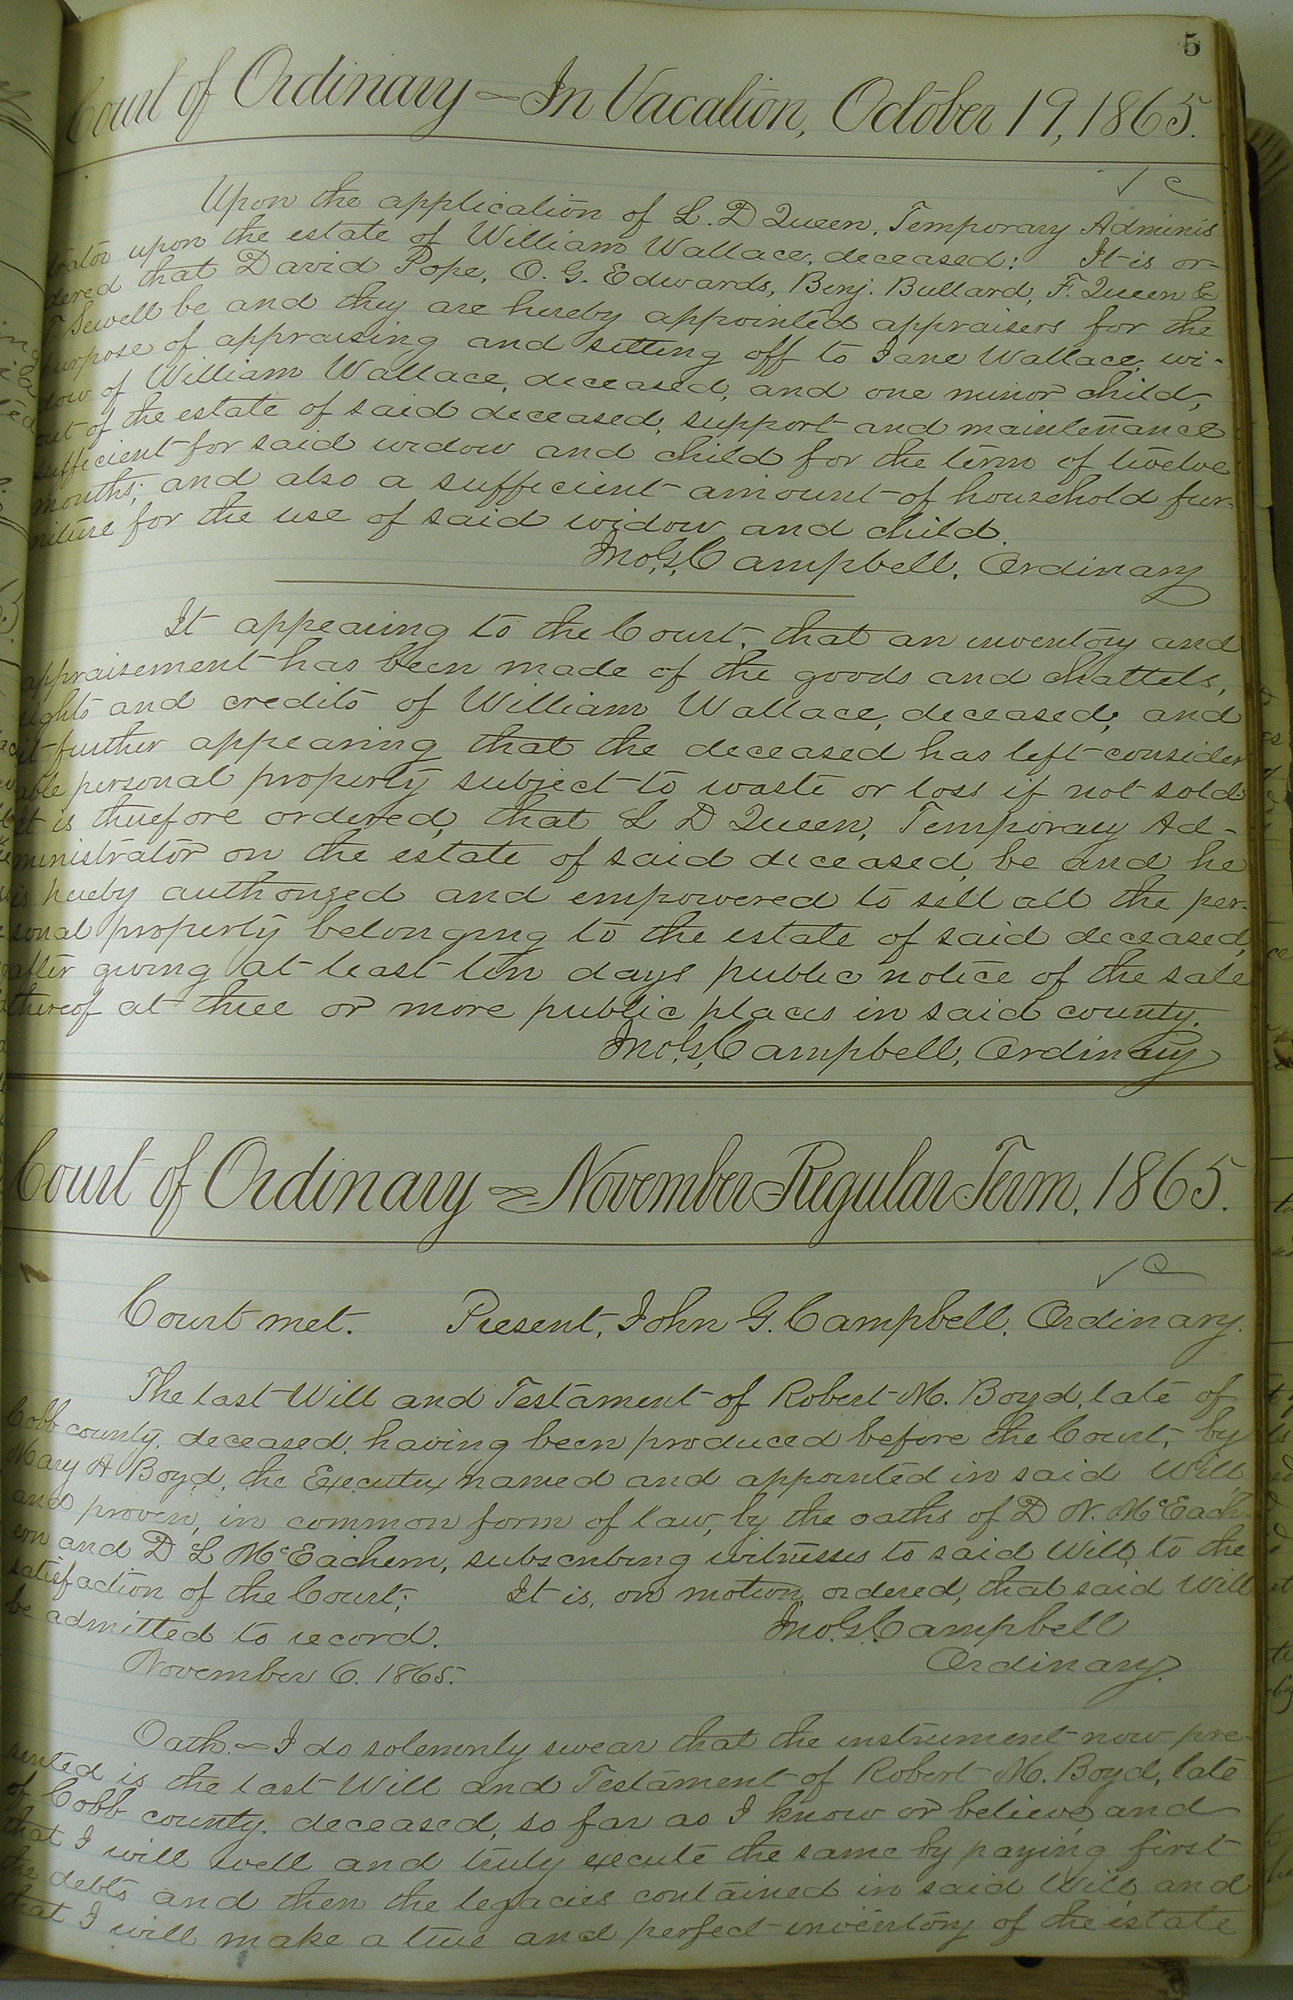 5
Court of Ordinary — In Vacation, October 19, 1865.
Upon the application of L. D Queen, Temporary Adminis
trator upon the estate of William Wallace, deceased: It is or-
dered that David Pope, O. G. Edwards, Benj. Bullard, F. Queen &
T. Sewell be and they are hereby appointed appraisers for the
purpose of appraising and setting off to Jane Wallace, wi-
dow of William Wallace, deceased, and one minor child,
out of the estate of said deceased, support and maintenance
sufficient for said widow and child for the term of twelve
months; and also a sufficient amount of household fur-
niture for the use of said widow and child.
Jno. G. Campbell, Ordinary
It appearing to the Court, that an inventory and
appraisement has been made of the goods and chattels,
rights and credits of William Wallace, deceased, and
it further appearing that the deceased has left consider
able personal property subject to waste or loss if not sold
it is therefore ordered, that L D Queen, Temporary Ad-
ministrator on the estate of said deceased, be and he
is hereby authorized and empowered to sell all the per-
sonal property belonging to the estate of said deceased,
after giving at least ten days public notice of the sale
thereof at three or more public places in said county.
Jno. G. Campbell, Ordinary
Court of Ordinary — November Regular Term, 1865.
Court met. Present, John G. Campbell, Ordinary.
The last Will and Testament of Robert M. Boyd, late of
Cobb county, deceased, having been produced before the Court, by
Mary A Boyd, the Executrix named and appointed in said Will,
and proven, in common form of law, by the oaths of D. N. McEach-
ern and D L McEachern, subscribing witnesses to said Will, to the
satisfaction of the Court; It is, on motion, ordered, that said Will
be admitted to record. Jno. G. Campbell
November 6. 1865. Ordinary.
Oath. — I do solemnly swear that the instrument now pre-
sented is the last Will and Testament of Robert M. Boyd, late
of Cobb county, deceased, so far as I know or believe, and
that I will well and truly execute the same by paying first
the debts and then the legacies contained in said Will, and
that I will make a true and perfect inventory of the estate